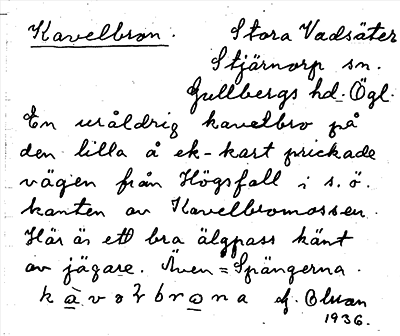 Kavelbron. Stora Vadsäter
Stjärnorp sn.
Gullbergs hd. Ögl.
En uråldrig kavelbro på
den lilla å ek-kart prickade
vägen från Högsfall i s.ö.
kanten av Kavelbromossen.
Här är ett bra älgpass känt
av jägare. Även = Spångerna.